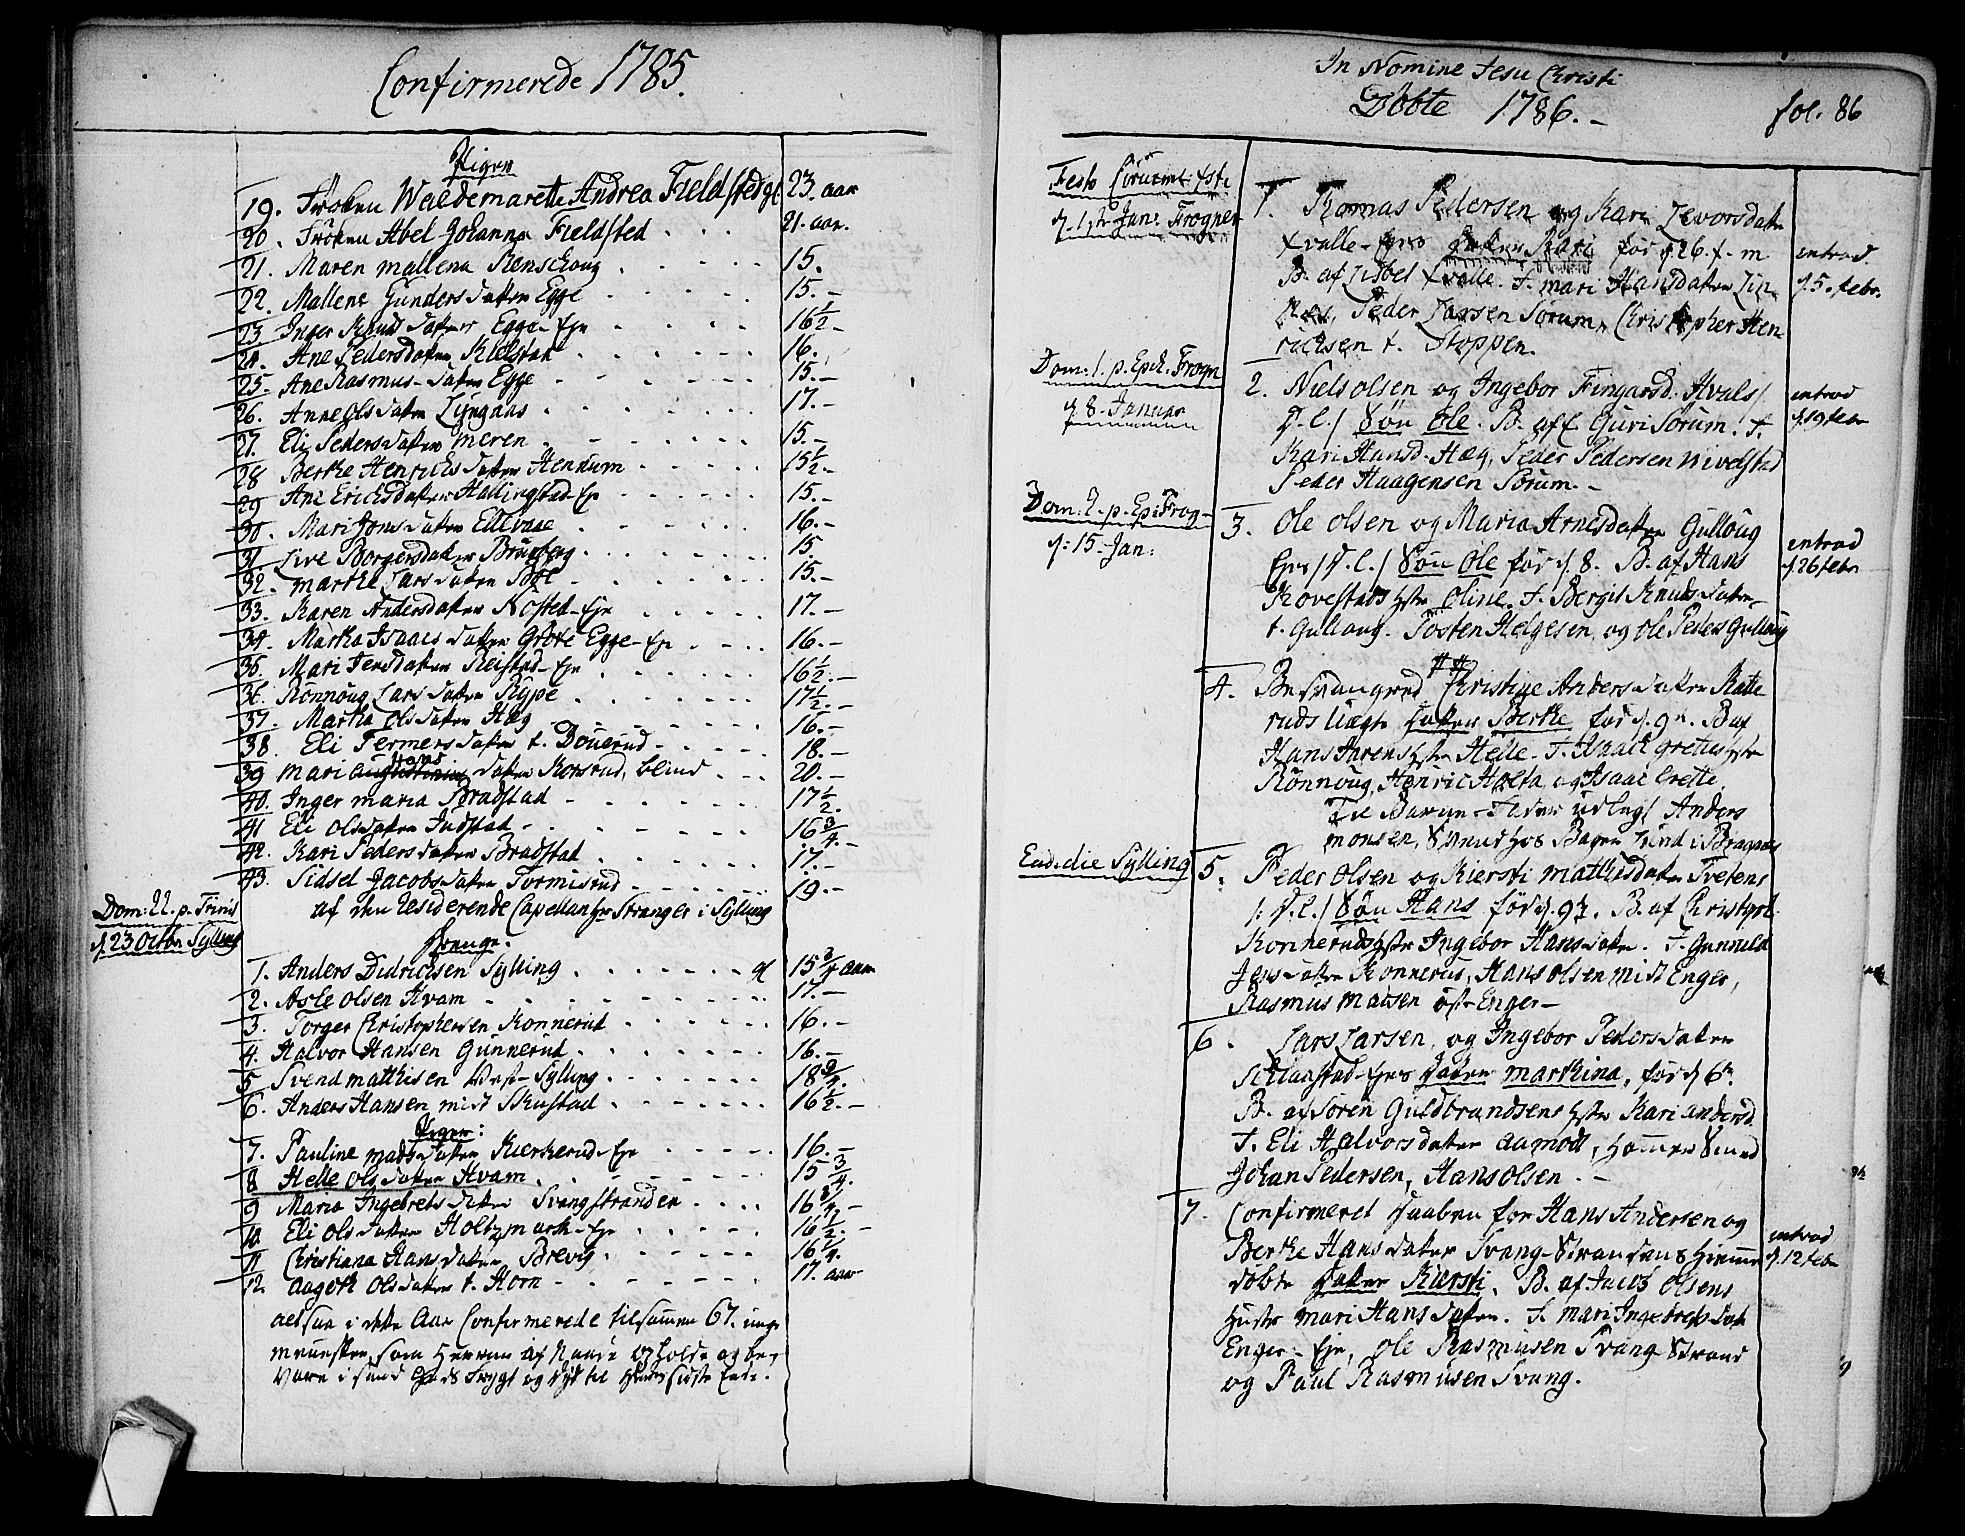 Confirmerede 1785.
Piger
19. Frøken Waldemarette Andrea Fieldsted 23. aar
20. Frøken Abel Johanna Fieldsted 21. aar.
21. Maren mallena Renschoug 15.
22. Mallene Gundersdaatter Egge 15.-
23 Inger Knudsdaatter Egge-Eje 16½-
24. Ane Pedersdatter Kielstad 16.
25. Ane Rasmus-datter Egge 15.-
26. Anne Olsdatter Lyngaas 17.-
27. Eli Pedersdatter meren 15.-
28 Berthe Henrichsdatter Hennum 15½-
29 Ane Ericksdatter Hallingstad-Eje 15.-
30. Mari Jonsdatter Ellevaae 16.-
31 Live Borgersdatter Bruuberg 15.
32. marthe Larsdatter 15.-
33. Karen Andersdatter Nøsted-Eje 17.-
34. Martha Isaacsdatter Grøte Egge-Eje 16.-
35. Mari Jensdatter Reistad-Eje 16½.-
36. Rønnoug Larsdatter Rype 17½.-
37. Martha Olsdatter Hæg 16.-
38. Eli Fermersdatter t. Douerud 18.-
39 mari Hans datter Korsrud, blind 20.-
40. Inger maria Bradstad 17½.
41 Eli Olsdatter Judstad 16¾.-
42. Kari Pedersdatter Bradstad 17.-
43. Sidsel Jacobsdatter Tormisrud 19.-
af den Residerende Capellan hr Stranger i Sylling
Dom: 22. p. Trinit
d. 23 Octbr Sylling
Drenge.
1. Anders Didrichsen Sylling 15¾ aar
2. Asle Olsen Hvam 17.-
3. Torger Christophersen Konnerud 16.-
4. Halvor Hansen Gunnerud 16.-
5 Svend matthisen Vest-Sylling 18¾.
6. Anders Hansen midt Skustad 16½.-
Piger:
7. Pauline madsdatter Kierkerud-Eje 16.-
8 Helle Olsdatter Hvam 15¾.
9 Maria Ingebretsdatter Svangstranden 16¾
10. Eli Olsdatter Holtzmark-Eje 16½.-
11 Christiana Hansdatter Brevig 16¼.
12 Aagoth Olsdatter t. Horn 17. aar
altsaa i dette Aar Confirmerede tilsamen 67. unge
mennesker, som Herren af Naade opholde og be-
vare i sand Guds Frygt og Dyd til Deres sidste Ende.
In Nomine Jesu Christi
Døbte 1786.-
fol. 86
Festo Circumc: Xsti
d. 1ste Jan: Frogner
1. Thomas Pedersen og Kari Levorsdatter
Qvalle-Ejes Datter Kari fød d. 26. f. m
B. af Lisbet Qvalle. F. mari Hansdatter Lin-
nes, Peder Larsen Sørum, Christopher Hen-
richsen t. Stoppen.
entred
d. 5. febr.
Dom: 1. p. Epi. Frogn
d. 8. Januar
2. Niels Olsen og Ingebor Fingarsd. Hvals/
V.E./ Søn Ole. B. aff Guri Sørum. F.
Kari Hansd. Hæg, Peder Pedersen Nivelstad
Peder Haagensen Sørum.-
entred
d. 19 febr
Dom: 2. p. Ep: Frog-
d: 15. Jan:
3. Ole Olsen og Maria Arnesdatter Gulloug
Ejes /V.E./ Søn Ole fød d. 8. B. af Hans
Kovestads Hstr Oline. F. Bergit Knudsdatter
t. Gulloug. Tosten Helgesen, og Ole Peders Gulloug
entred
d. 26 febr
4. Besvangred Christine Andersdatter Ratte
ruds Uægte Datter Berthe fød d. 9n. B. af
Hans Hstr Helle. F. Isaach Hstr
Rønnoug, Henric Holta, og Isaac
Til Barne-Fader udlegt Anders
monsen, Smed hos Bager Lund i Bragnæs
Eod: die Sylling
5. Peder Olsen og Kiersti mathisdatter Tvetens
/: V.E./ Søn Hans fød d. 9n. B. af Christoph
Konneruds Hstr Ingebor Hansdatter. F. Gunnild
Jensdatter Konnerud, Hans Olsen midt Enger,
Rasmus madsen øst-Enger-
6. Lars Larsen, og Ingebor Pedersdatter
Schiarstad-Ejes Datter marthina, fød d 6n.
B. af Søren Guldbrandsens Hstr Kari andersd.
F. Eli Halvorsdatter aamodt, Hammer Smed
Johan Pedersen, Hans Olsen.-
7. Confirmeret Daaben for Hans Andersen og
Berthe Hansdatter Svang-Strandens hiemme
døbte Datter Kiersti. B. af Jacob Olsens
Hustr mari Hansdatter. F. mari Ingebretsdat
Enger-Eje, Ole Rasmusen Svang Strand
og Paul Rasmusen Svang.
entred
d. 12 febr